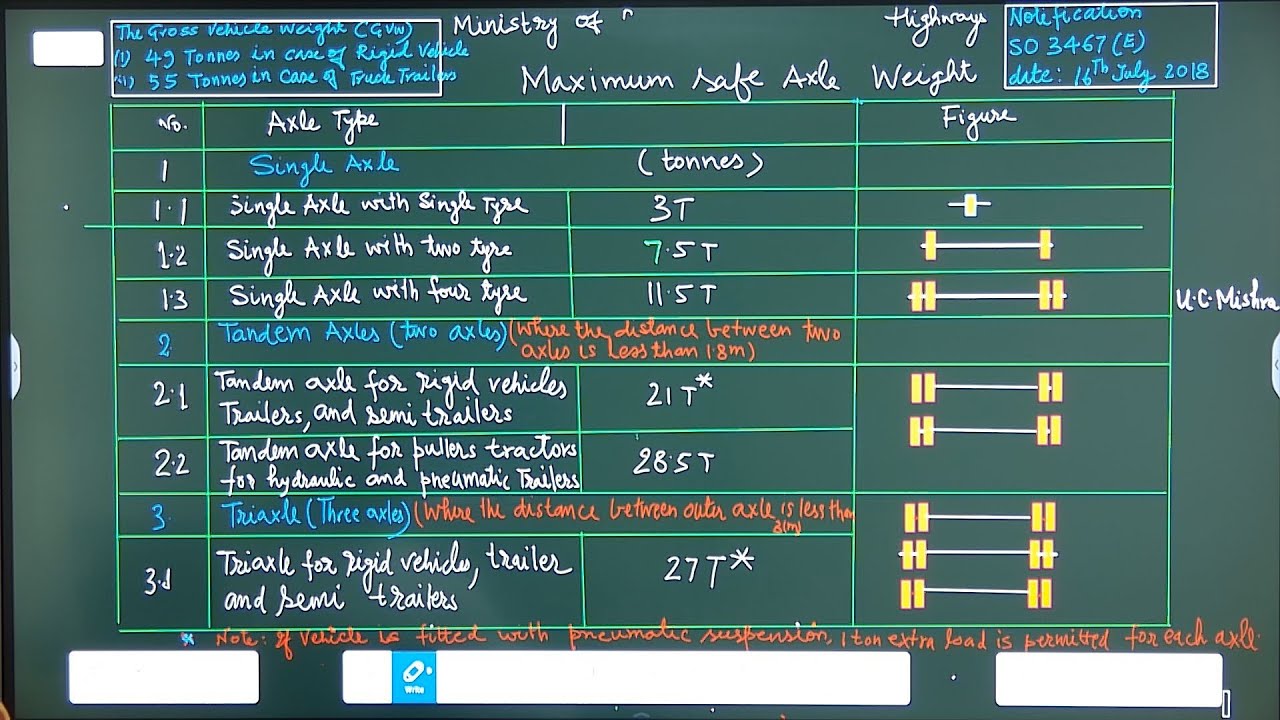 The Gross Vehicle Weight (GVW)
(i) 49 Tonnes in case of Rigid Vehicle
(ii) 55 Tonnes in case of Truck Trailers
Ministry of
Highways
Notification
SO 3467(E)
date: 16Th July 2018
Maximum Safe Axle Weight
No. Axle Type Figure
1 Single Axle (tonnes)
1.1 Single Axle with Single Tyre 3T
1.2 Single Axle with two tyre 7.5T
1.3 Single Axle with four tyre 11.5T
U.C. Mishra
2 Tandem Axles (two axles) (Where the distance between two
axles is less than 1.8m)
2.1 Tandem axle for rigid vehicles
Trailers, and semi trailers 21T*
2.2 Tandem axle for pullers tractors
for hydraulic and pneumatic Trailers 28.5T
3. Triaxle (Three axles) (Where the distance between outer axle is less than
3(m)
3.1 Triaxle for rigid vehicles, trailer
and semi trailers 27T*
* Note: if vehicle is fitted with pneumatic suspension, 1 ton extra load is permitted for each axle.
Write